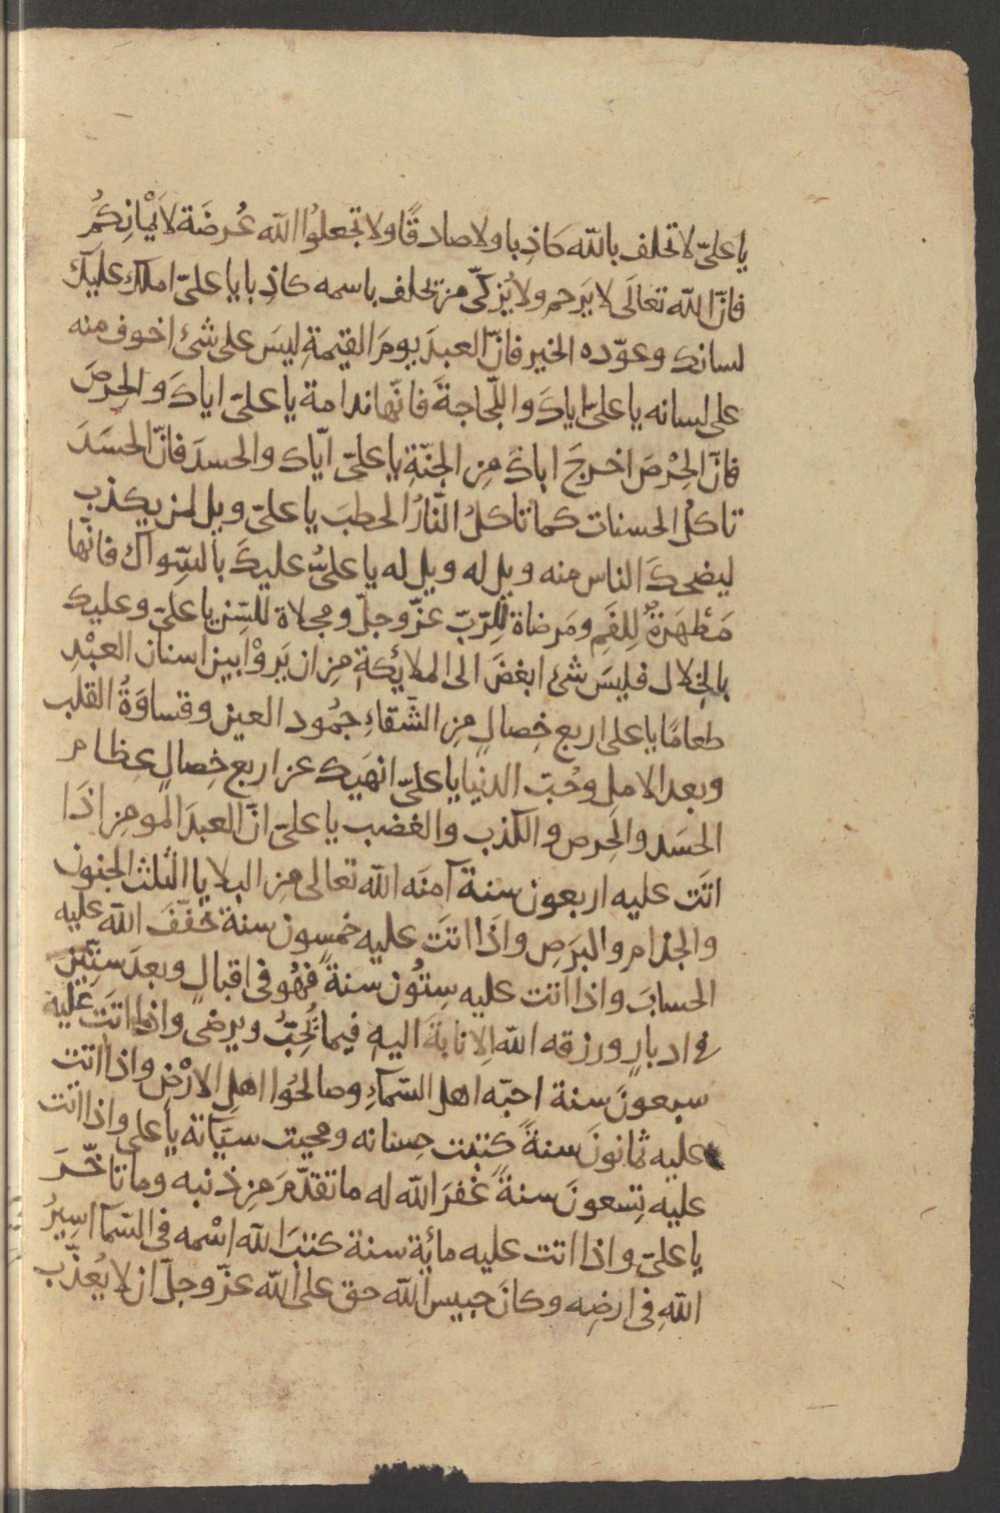 يا علىّ لا تحلف بالله كاذِبا ولا صادقًا ولا تجعلوُا الله عُرضَة لاَيْمانِكمُ
فانّ الله تعالَى لا يَرحم ولا يُزكّى من تحلف باسمه كاذِبا يا علىّ املك عليكَ
لسانك وعوّده الخير فانّ العبدَ يومَ القيٰمةِ ليسَ على شئ اخوف منه
على لسانه يا علىّ اياكَ واللّجاجةَ فانّها ندامة يا علىّ اياكَ والحِرصَ
فانّ الحِرْصَ اخرجَ اباكَ مِن الجنّةِ يا علىّ ايّاك والحسدَ فانّ الحسَدَ
تاكلُ الحسنات كما تاكلُ النّارُ الحطبَ يا علىّ ويل لمن يكذب
ليضحكَ الناس منه ويل له ويل له يا علىُّ عليكَ بالسِّواك فانّها
مَطْهَرَةٌ لِلفَمِ ومَرضاة للرّبّ عزّ وجلّ ومجلاة للسّن يا علىّ وعليك
بالخِلال فليسَ شئ ابغضَ الى الملائكةِ مِن ان يَروْا بين اسنان العبْدِ
طعامًا يا على اربع خِصالٍ مِن الشّقاءِ جمُود العين وقساوَةُ القلب
وبعد الامل وحُبّ الدنيا يا علىّ انهَيك عن اربع خِصالٍ عِظام
الحسَد والحِرص والكذب والغضب يا علىّ انّ العبدَ المومِن اذَا
اتَت عليه اربعون سنة آمنَه الله تعالى مِن البلايا الثلث الجنون
والجذام والبرَصِ واذَا اتَت عليه خمسون سنة خفّفَ الله عليه
الحسابَ واذا اتت عليه سِتُون سنةً فهُو فى اقبالٍ وبعدَ ستّين
فى ادبارٍ ورزقه الله الاِنابةَ اليهِ فيما تُحِبُّ ويرضى واذا اتَت عليه
سبعونَ سنة احبّه اهل السّماءِ وصالحُوا اهلِ الارْضِ واذا اتت
عليه ثمانونَ سنةً كتبت حسناته ومحيت سيّاته يا على واذا اتت
عليه تِسعونَ سنةً غفرَ الله له ما تقدّمَ مِن ذنبه وما تاخّرَ
يا علىّ واذا اتت عليه مائة سنة كتبَ الله اسْمه فى السّما اسِيرُ
اللهِ فى ارضِه وكانَ حبيس الله حق على الله عزّ وجلّ ان لا يُعذّب